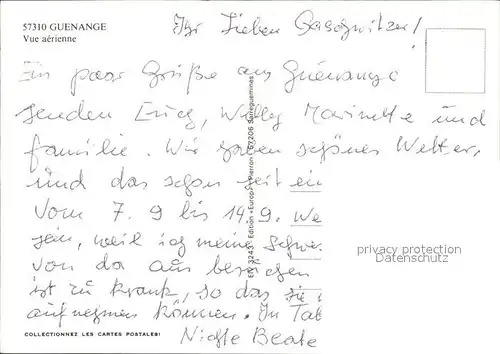 57310 GUENANGE
Vue aérienne
Ihr Lieben
Ein paar Grüße aus Guénange
senden Euch, Willy Marinette und
familie. Wir haben schönes Wetter,
und das schon seit ein
Vom 7. 9 bis 14. 9. We
sein, weil ich meine Schwe
von da aus besuchen
ist zu krank, so das sie
aufnehmen können. In
Nichte Beate
EK 3243 Edition «Europ» Pierron 57206 Sarreguemines
privacy protection
Datenschutz
COLLECTIONNEZ LES CARTES POSTALES!